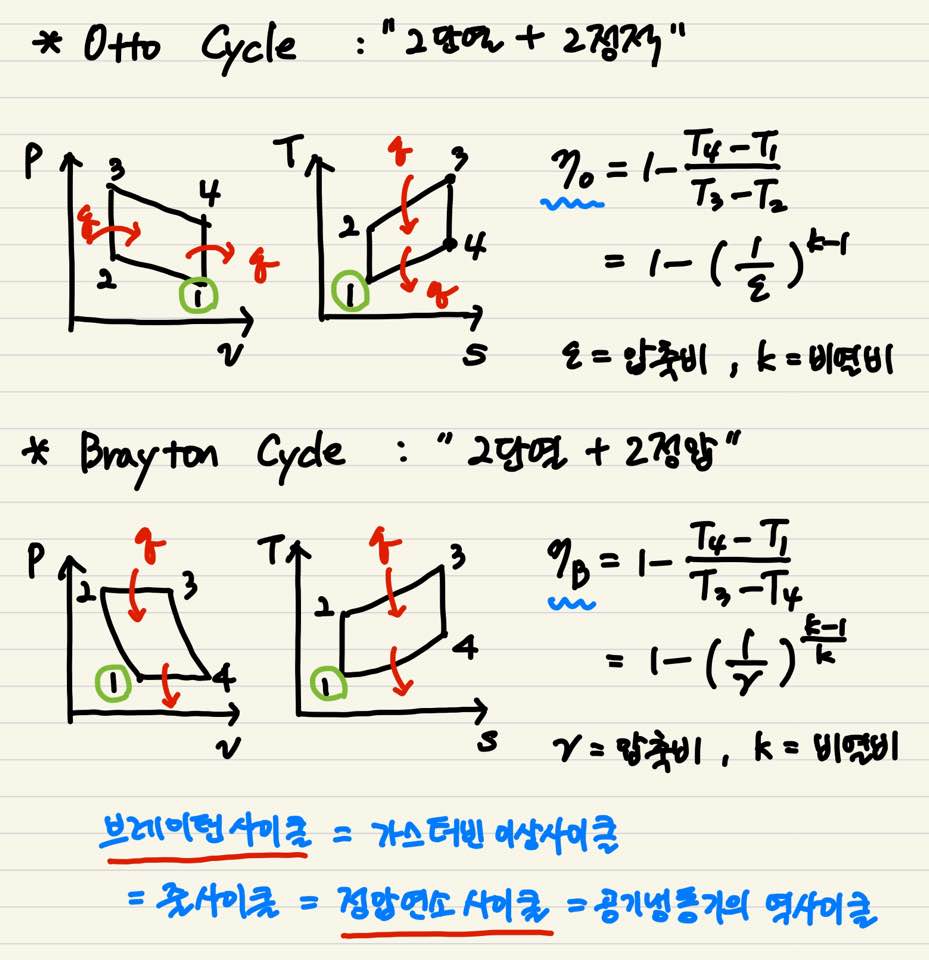 * Otto Cycle : "2단열 + 2정적"
P 3 4 2 1 q q v
T q 3 2 4 1 q s
η₀ = 1 - (T₄ - T₁)/(T₃ - T₂)
= 1 - (1/ε)^(k-1)
ε = 압축비 , k = 비열비
* Brayton Cycle : "2단열 + 2정압"
P q 2 3 1 4 v
T q 3 2 4 1 s
η_B = 1 - (T₄ - T₁)/(T₃ - T₄)
= 1 - (1/γ)^((k-1)/k)
γ = 압축비 , k = 비열비
브레이턴 사이클 = 가스터빈 이상사이클
= 줄사이클 = 정압연소 사이클 = 공기냉동기의 역사이클